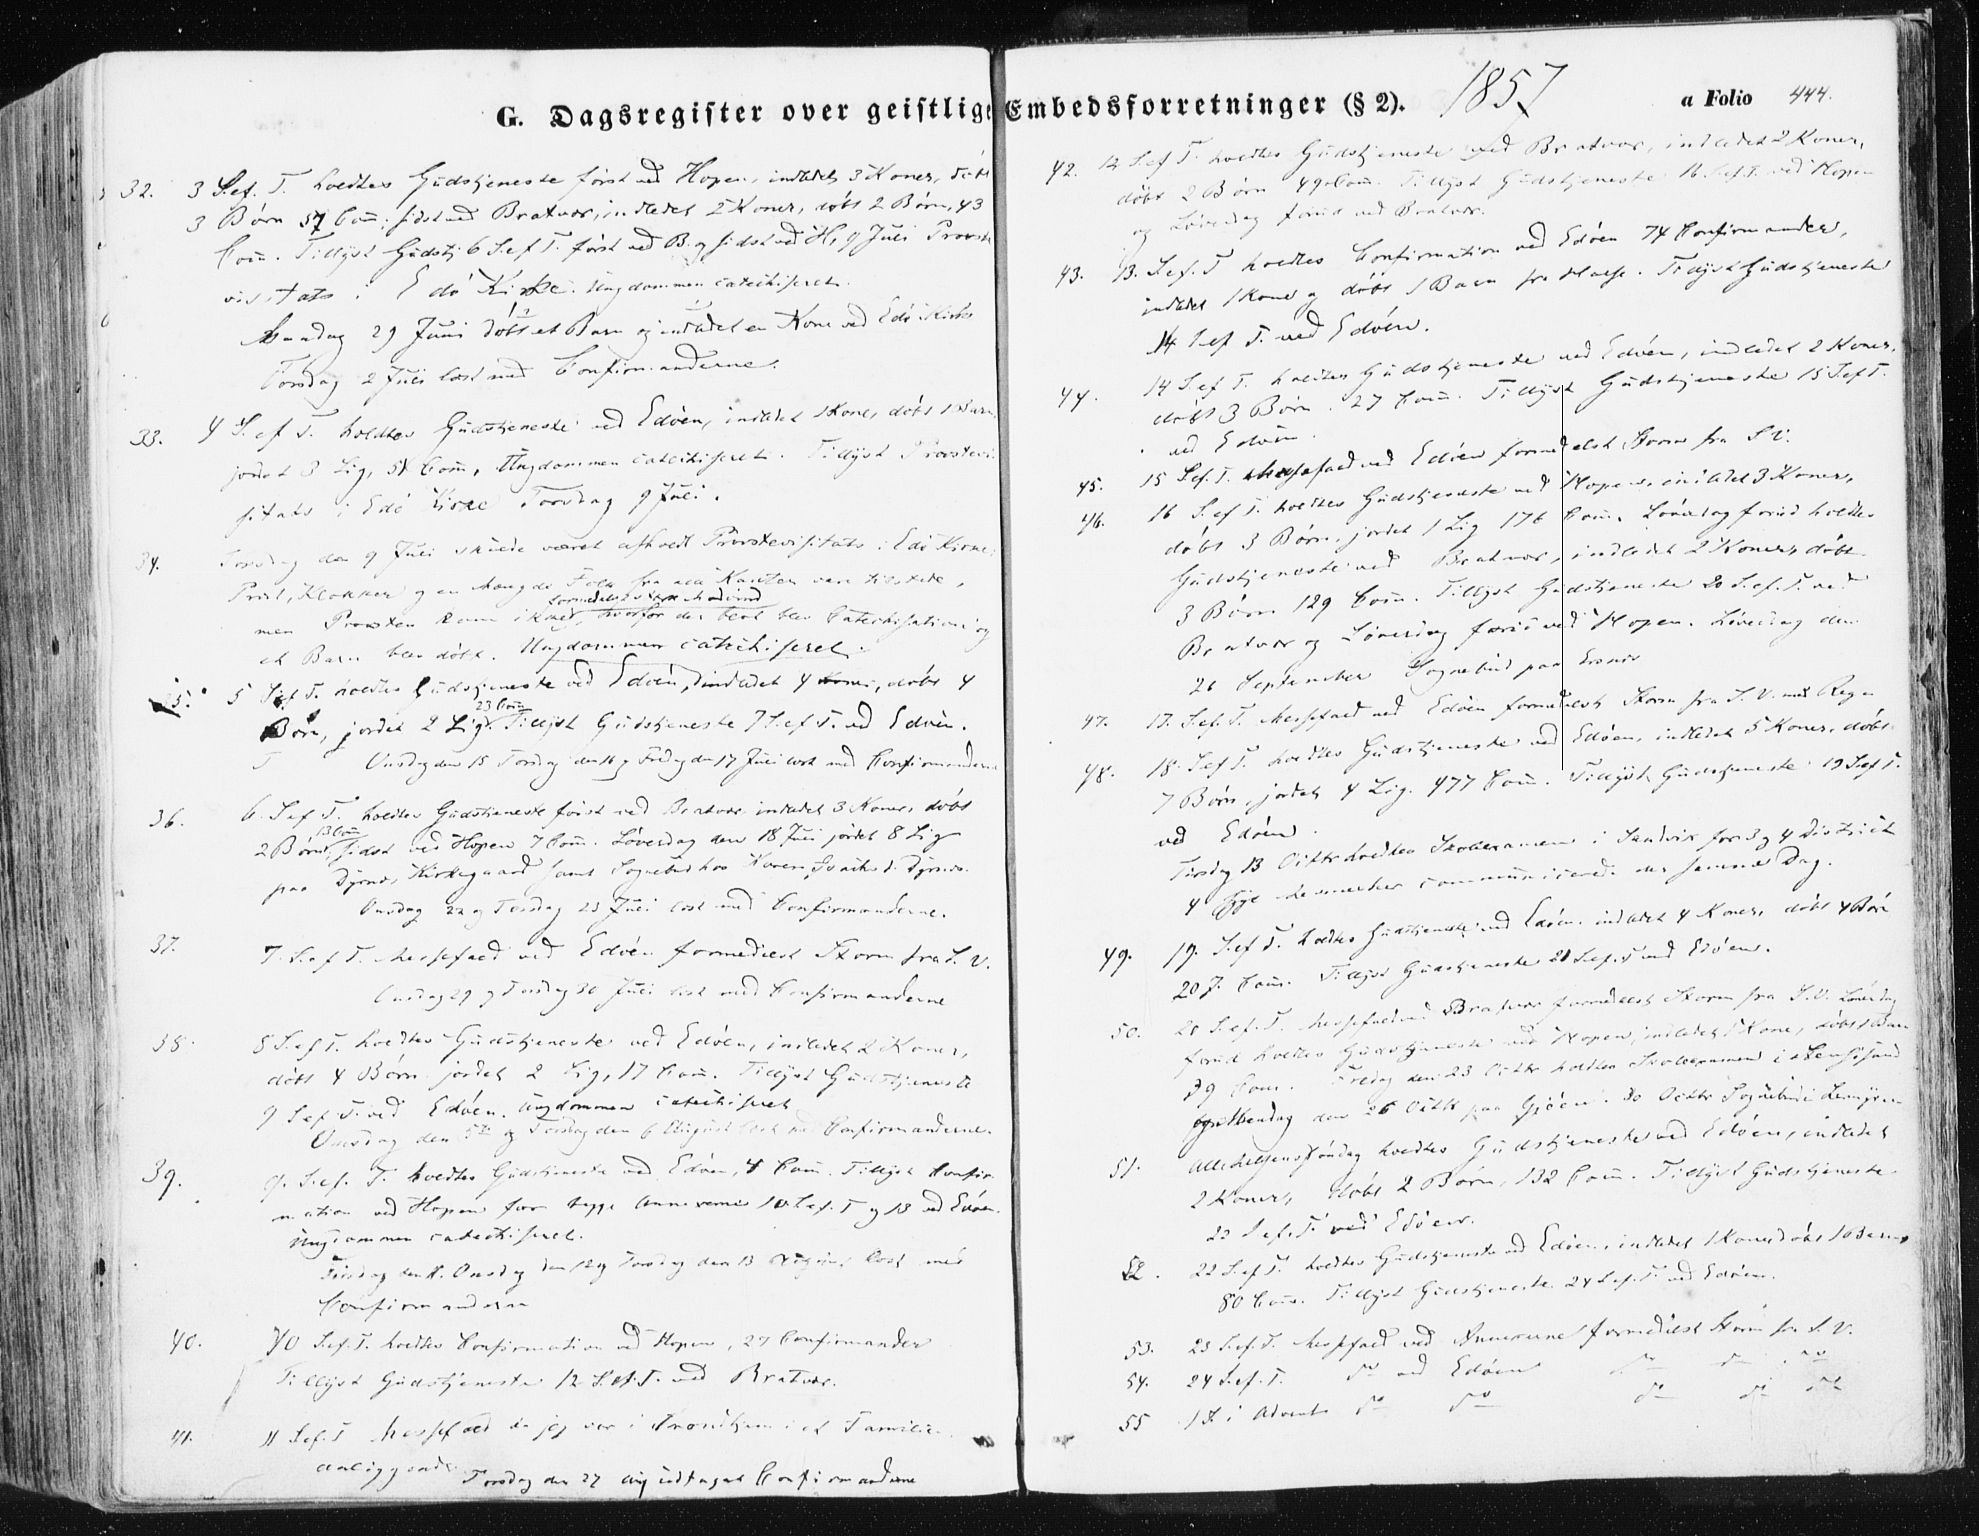 G. Dagsregister over geistlige Embedsforretninger (§ 2). 1857 a Folio 444.
32. 3 S. ef. T. holdtes Gudstjeneste först ved Hopen, indledet 3 Koner, döbt
3 Börn 57 Com; sidst ved Bratvær, indledet 2 Koner, döbt 2 Börn, 43
Com. Tillyst Gudstj 6 S. ef T. först ved B. og sidst ved H, 9 Juli Provste
visitats i Edö Kirke. Ungdommen catechiseret.
Mandag 29 Juni döbt et Barn og indledet en Kone ved Edö Kirke
Torsdag 2 Juli læst med Confirmanderne.
33. 4 S. ef T. holdtes Gudstjeneste ved Edöen, indledet 1 Kone, döbt 1 Barn
jordet 3 Lig, 51 Com, Ungdommen catechiseret. Tillyst Provstevi
sitats i Edö Kirke Torsdag 9 Juli.
34. Torsdag den 9 Juli skulde været afholdt Provstevisitats i Edö Kirke;
Præst, Klokker og en Mængde Folk fra alle Kanter vare tilstede,
men Provsten kom ikke formedelst stærk Modvind, hvorfor der blot blev Catechisation og
et Barn blev döbt. Ungdommen catechiseret.
35. 5 S. ef T. holdtes Gudstjeneste ved Edöen, indledet 4 Koner, döbt 4
Börn, jordet 2 Lig. 23 Com. Tillyst Gudstjeneste 7 S. ef T. ved Edöen.
Onsdag den 15 Torsdag den 16 og Fredag den 17 Juli læst med Confirmanderne
36. 6 S. ef T. holdtes Gudstjeneste först ved Bratvær indledet 3 Koner, döbt
2 Börn, 13 Com, sidst ved Hopen 7 Com. Löverdag den 18 Juli jordet 8 Lig
paa Dyrnes Kirkegaard samt Sognebud hos Karen i Dyrnes.
Onsdag 22 og Torsdag 23 Juli læst med Confirmanderne.
37. 7 S. ef T. Messefald ved Edöen formedelst Storm fra S. V.
Onsdag 29 og Torsdag 30 Juli læst med Confirmanderne
38. 8 S. ef T. holdtes Gudstjeneste ved Edöen, indledet 2 Koner,
döbt 4 Börn jordet 2 Lig, 17 Com. Tillyst Gudstjeneste
9 S. ef T. ved Edöen. Ungdommen catechiseret
Onsdag den 5te og Torsdag den 6 August læst med Confirmanderne.
39. 9. S. ef. T. holdtes Gudstjeneste ved Edöen, 4 Com. Tillyst Confir
mation ved Hopen for begge Annexerne 10 S. ef. T og 13 ved Edöen.
Ungdommen catechiseret.
Tirsdag den 11. Onsdag den 12 og Torsdag den 13 August læst med
Confirmanderne
40. 10 S. ef. T. holdtes Confirmation ved Hopen, 27 Confirmander
Tillyst Gudstjeneste 12 S. ef. T. ved Bratvær.
41. 11 S. ef. T Messefald da jeg var i Trondhjem i et Familie
anliggende
Torsdag den 27 Aug udtaget Confirmanderne
42. 12 S. ef T. holdtes Gudstjeneste ved Bratvær, indledet 2 Koner,
döbt 2 Börn 49 Com. Tillyst Gudstjeneste 16 S. ef. T. ved Hopen
og Löverdag forud ved Bratvær.
43. 13. S. ef. T holdtes Confirmation ved Edöen 74 Confirmander,
indledet 1 Kone og döbt 1 Barn fra Halse. Tillyst Gudstjeneste
14 S. ef T. ved Edöen.
44. 14 S. ef T. holdtes Gudstjeneste ved Edöen, indledet 2 Koner,
döbt 3 Börn. 27 Com. Tillyst Gudstjeneste 15 S. ef T.
ved Edöen.
45. 15 S. ef. T. Messefald ved Edöen formedelst Storm fra S. V.
46. 16 S. ef T. holdtes Gudstjeneste ved Hopen, indledet 3 Koner,
döbt 3 Börn, jordet 1 Lig 176 Com. Löverdag forud holdtes
Gudstjeneste ved Bratvær, indledet 2 Koner, döbt
3 Börn 129 Com. Tillyst Gudstjeneste 20 S. ef. T. ved
Bratvær og Löverdag forud ved Hopen. Löverdag den
26 September Sognebud paa
47. 17. S. ef. T. Messefald ved Edöen formedelst Storm fra S. V. med Regn
48. 18. S. ef T. holdtes Gudstjeneste ved Edöen, indledet 5 Koner, döbt
7 Börn, jordet 4 Lig. 477 Com. Tillyst Gudstjeneste 19 S. ef T.
ved Edöen.
Tirsdag 13 Octbr holdtes Skoleexamen i Sandvik for 3 og 4 District
4 syge Mennesker communicerede der samme Dag.
49. 19. S. ef T. holdtes Gudstjeneste ved Edöen indledet 4 Koner, döbt 4 Börn
207. Com. Tillyst Gudstjeneste 21 S. ef. T ved Edöen.
50. 20 S. ef. T. Messefald ved Bratvær formedelst Storm fra S. V. Löverdag
forud holdtes Gudstjeneste ved Hopen, indledet 1 Kone, döbt 1 Barn
39 Com. Fredag den 23 Octbr holdtes Skoleexamen i
og Mandag den 26 Octbr paa Gjöen. 30 Octbr Sognebud i
51. Allehelgens Söndag holdtes Gudstjeneste ved Edöen, indledet
2 Koner, döbt 2 Börn, 132 Com. Tillyst Gudstjeneste
22 S. ef. T. ved Edöen.
52. 22 S. ef T. holdtes Gudstjeneste ved Edöen, indledet 1 Kone, döbt 1 Barn,
80 Com. Tillyst Gudstjeneste 24 S. ef. T. ved Edöen.
53. 23 S. ef. T. Messefald ved Annexerne formedelst Storm fra S. V.
54. 24 S. ef. T. do ved Edöen do do do
55 1 S. i Advent do do do do do